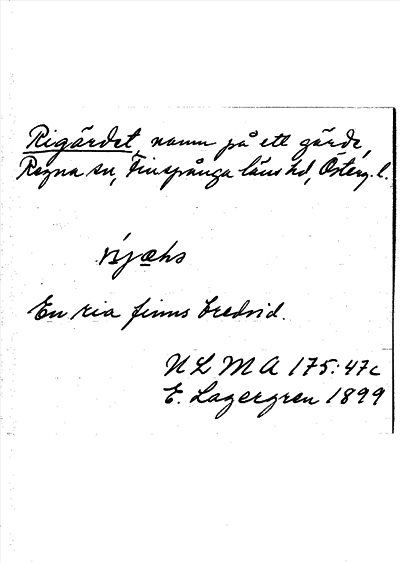 Rigärdet, namn på ett gärde,
Regna sn, Finspånga läns hd, Österg. l.
En ria finns bredvid.
ULMA 175:47c
E. Lagergren 1899